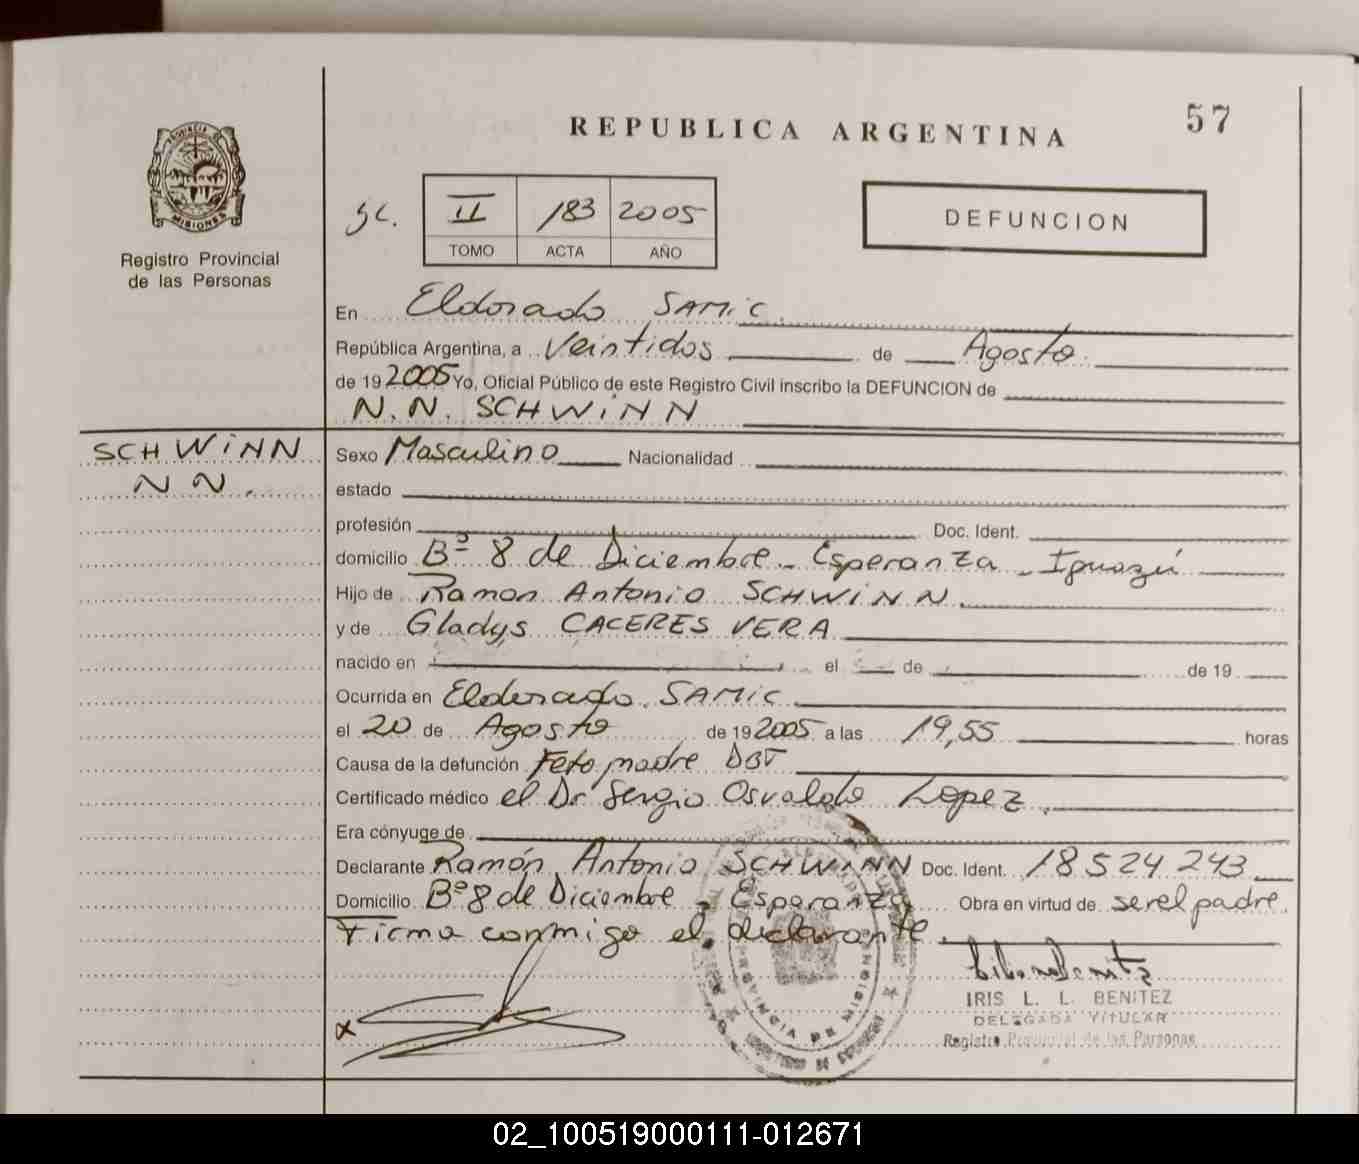 57
REPUBLICA ARGENTINA
PROVINCIA DE
MISIONES
Registro Provincial
de las Personas
II 183 2005
TOMO ACTA AÑO
DEFUNCION
En Eldorado SAMIC
República Argentina, a Veintidos de Agosto
de 19 2005 Yo, Oficial Público de este Registro Civil inscribo la DEFUNCION de
N. N. SCHWINN
SCHWINN
N N.
Sexo Masculino Nacionalidad
estado
profesión Doc. Ident.
domicilio Bº 8 de Diciembre - Esperanza - Iguazú
Hijo de Ramon Antonio SCHWINN
y de Gladys CACERES VERA
nacido en el de de 19
Ocurrida en Eldorado SAMIC
el 20 de Agosto de 19 2005 a las 19,55 horas
Causa de la defunción Feto madre DBT
Certificado médico el Dr Sergio Osvaldo Lopez.
Era cónyuge de
Declarante Ramón Antonio SCHWINN Doc. Ident. 18524243
Domicilio Bº 8 de Diciembre - Esperanza Obra en virtud de ser el padre.
Firma conmigo el declarante
x
PROVINCIA DE MISIONES
IRIS L. L. BENITEZ
DELEGADA TITULAR
Registro Provincial de las Personas
02_100519000111-012671